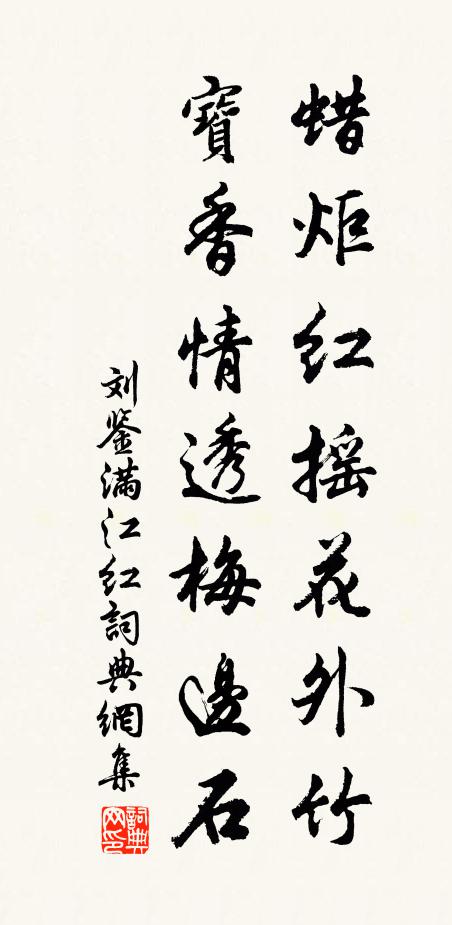 蜡炬红摇花外竹
寶香情透梅邊石
刘鉴满江红詞典網集
詞典网印